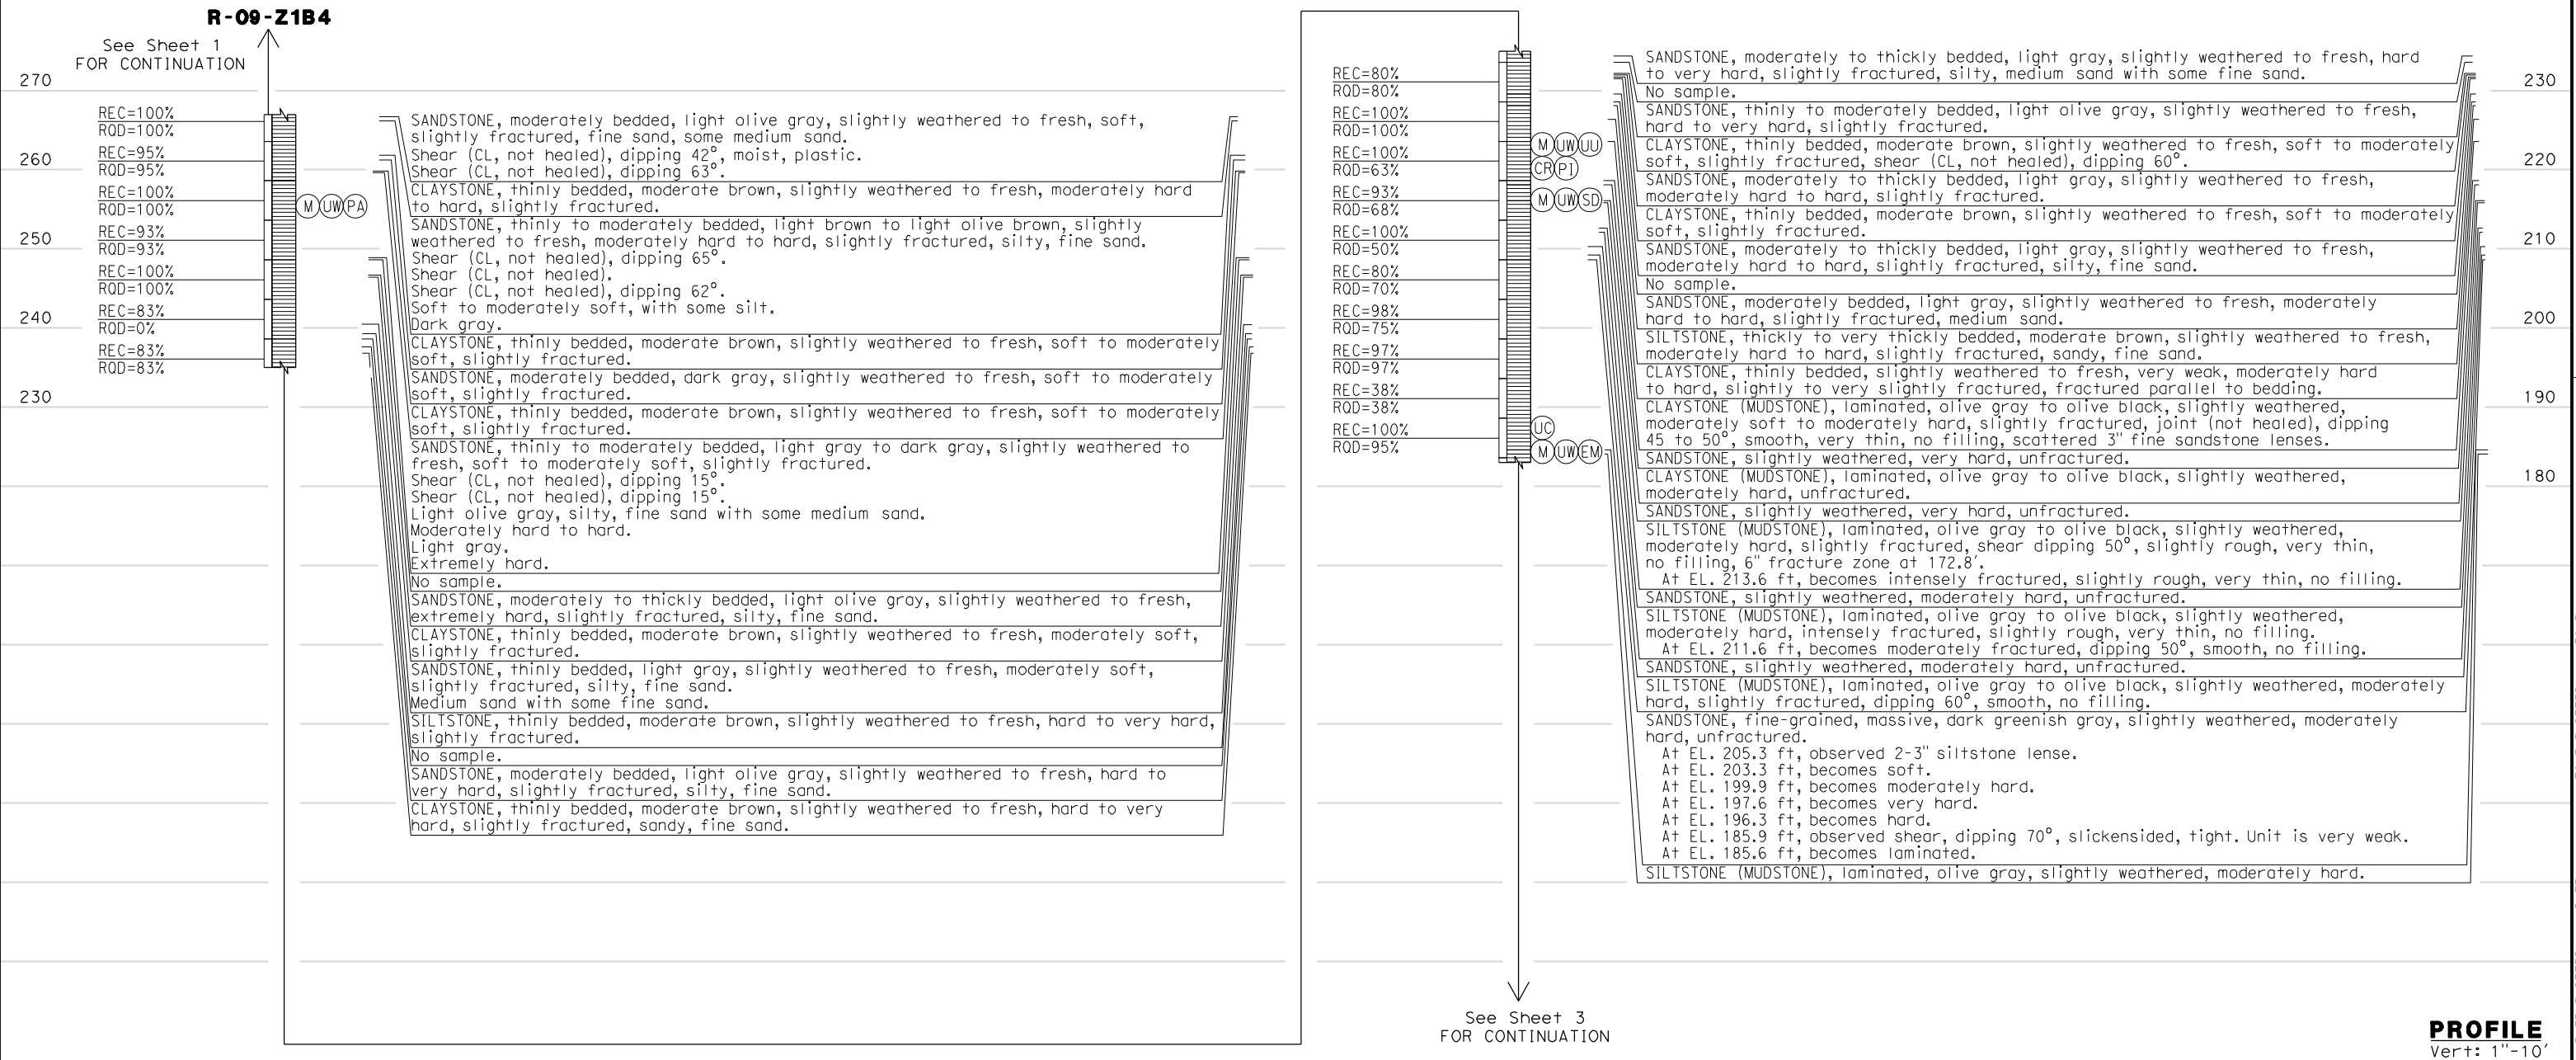 R-09-Z1B4
See Sheet 1
FOR CONTINUATION
270
260
250
240
230
REC=100%
RQD=100%
REC=95%
RQD=95%
REC=100%
RQD=100%
REC=93%
RQD=93%
REC=100%
RQD=100%
REC=83%
RQD=0%
REC=83%
RQD=83%
M UW PA
SANDSTONE, moderately bedded, light olive gray, slightly weathered to fresh, soft,
slightly fractured, fine sand, some medium sand.
Shear (CL, not healed), dipping 42°, moist, plastic.
Shear (CL, not healed), dipping 63°.
CLAYSTONE, thinly bedded, moderate brown, slightly weathered to fresh, moderately hard
to hard, slightly fractured.
SANDSTONE, thinly to moderately bedded, light brown to light olive brown, slightly
weathered to fresh, moderately hard to hard, slightly fractured, silty, fine sand.
Shear (CL, not healed), dipping 65°.
Shear (CL, not healed).
Shear (CL, not healed), dipping 62°.
Soft to moderately soft, with some silt.
Dark gray.
CLAYSTONE, thinly bedded, moderate brown, slightly weathered to fresh, soft to moderately
soft, slightly fractured.
SANDSTONE, moderately bedded, dark gray, slightly weathered to fresh, soft to moderately
soft, slightly fractured.
CLAYSTONE, thinly bedded, moderate brown, slightly weathered to fresh, soft to moderately
soft, slightly fractured.
SANDSTONE, thinly to moderately bedded, light gray to dark gray, slightly weathered to
fresh, soft to moderately soft, slightly fractured.
Shear (CL, not healed), dipping 15°.
Shear (CL, not healed), dipping 15°.
Light olive gray, silty, fine sand with some medium sand.
Moderately hard to hard.
Light gray.
Extremely hard.
No sample.
SANDSTONE, moderately to thickly bedded, light olive gray, slightly weathered to fresh,
extremely hard, slightly fractured, silty, fine sand.
CLAYSTONE, thinly bedded, moderate brown, slightly weathered to fresh, moderately soft,
slightly fractured.
SANDSTONE, thinly bedded, light gray, slightly weathered to fresh, moderately soft,
slightly fractured, silty, fine sand.
Medium sand with some fine sand.
SILTSTONE, thinly bedded, moderate brown, slightly weathered to fresh, hard to very hard,
slightly fractured.
No sample.
SANDSTONE, moderately bedded, light olive gray, slightly weathered to fresh, hard to
very hard, slightly fractured, silty, fine sand.
CLAYSTONE, thinly bedded, moderate brown, slightly weathered to fresh, hard to very
hard, slightly fractured, sandy, fine sand.
REC=80%
RQD=80%
REC=100%
RQD=100%
REC=100%
RQD=63%
REC=93%
RQD=68%
REC=100%
RQD=50%
REC=80%
RQD=70%
REC=98%
RQD=75%
REC=97%
RQD=97%
REC=38%
RQD=38%
REC=100%
RQD=95%
M UW UU
CR PI
M UW SD
UC
M UW EM
SANDSTONE, moderately to thickly bedded, light gray, slightly weathered to fresh, hard
to very hard, slightly fractured, silty, medium sand with some fine sand.
No sample.
SANDSTONE, thinly to moderately bedded, light olive gray, slightly weathered to fresh,
hard to very hard, slightly fractured.
CLAYSTONE, thinly bedded, moderate brown, slightly weathered to fresh, soft to moderately
soft, slightly fractured, shear (CL, not healed), dipping 60°.
SANDSTONE, moderately to thickly bedded, light gray, slightly weathered to fresh,
moderately hard to hard, slightly fractured.
CLAYSTONE, thinly bedded, moderate brown, slightly weathered to fresh, soft to moderately
soft, slightly fractured.
SANDSTONE, moderately to thickly bedded, light gray, slightly weathered to fresh,
moderately hard to hard, slightly fractured, silty, fine sand.
No sample.
SANDSTONE, moderately bedded, light gray, slightly weathered to fresh, moderately
hard to hard, slightly fractured, medium sand.
SILTSTONE, thickly to very thickly bedded, moderate brown, slightly weathered to fresh,
moderately hard to hard, slightly fractured, sandy, fine sand.
CLAYSTONE, thinly bedded, slightly weathered to fresh, very weak, moderately hard
to hard, slightly to very slightly fractured, fractured parallel to bedding.
CLAYSTONE (MUDSTONE), laminated, olive gray to olive black, slightly weathered,
moderately soft to moderately hard, slightly fractured, joint (not healed), dipping
45 to 50°, smooth, very thin, no filling, scattered 3" fine sandstone lenses.
SANDSTONE, slightly weathered, very hard, unfractured.
CLAYSTONE (MUDSTONE), laminated, olive gray to olive black, slightly weathered,
moderately hard, unfractured.
SANDSTONE, slightly weathered, very hard, unfractured.
SILTSTONE (MUDSTONE), laminated, olive gray to olive black, slightly weathered,
moderately hard, slightly fractured, shear dipping 50°, slightly rough, very thin,
no filling, 6" fracture zone at 172.8'.
At EL. 213.6 ft, becomes intensely fractured, slightly rough, very thin, no filling.
SANDSTONE, slightly weathered, moderately hard, unfractured.
SILTSTONE (MUDSTONE), laminated, olive gray to olive black, slightly weathered,
moderately hard, intensely fractured, slightly rough, very thin, no filling.
At EL. 211.6 ft, becomes moderately fractured, dipping 50°, smooth, no filling.
SANDSTONE, slightly weathered, moderately hard, unfractured.
SILTSTONE (MUDSTONE), laminated, olive gray to olive black, slightly weathered, moderately
hard, slightly fractured, dipping 60°, smooth, no filling.
SANDSTONE, fine-grained, massive, dark greenish gray, slightly weathered, moderately
hard, unfractured.
At EL. 205.3 ft, observed 2-3" siltstone lense.
At EL. 203.3 ft, becomes soft.
At EL. 199.9 ft, becomes moderately hard.
At EL. 197.6 ft, becomes very hard.
At EL. 196.3 ft, becomes hard.
At EL. 185.9 ft, observed shear, dipping 70°, slickensided, tight. Unit is very weak.
At EL. 185.6 ft, becomes laminated.
SILTSTONE (MUDSTONE), laminated, olive gray, slightly weathered, moderately hard.
230
220
210
200
190
180
See Sheet 3
FOR CONTINUATION
PROFILE
Vert: 1"-10'